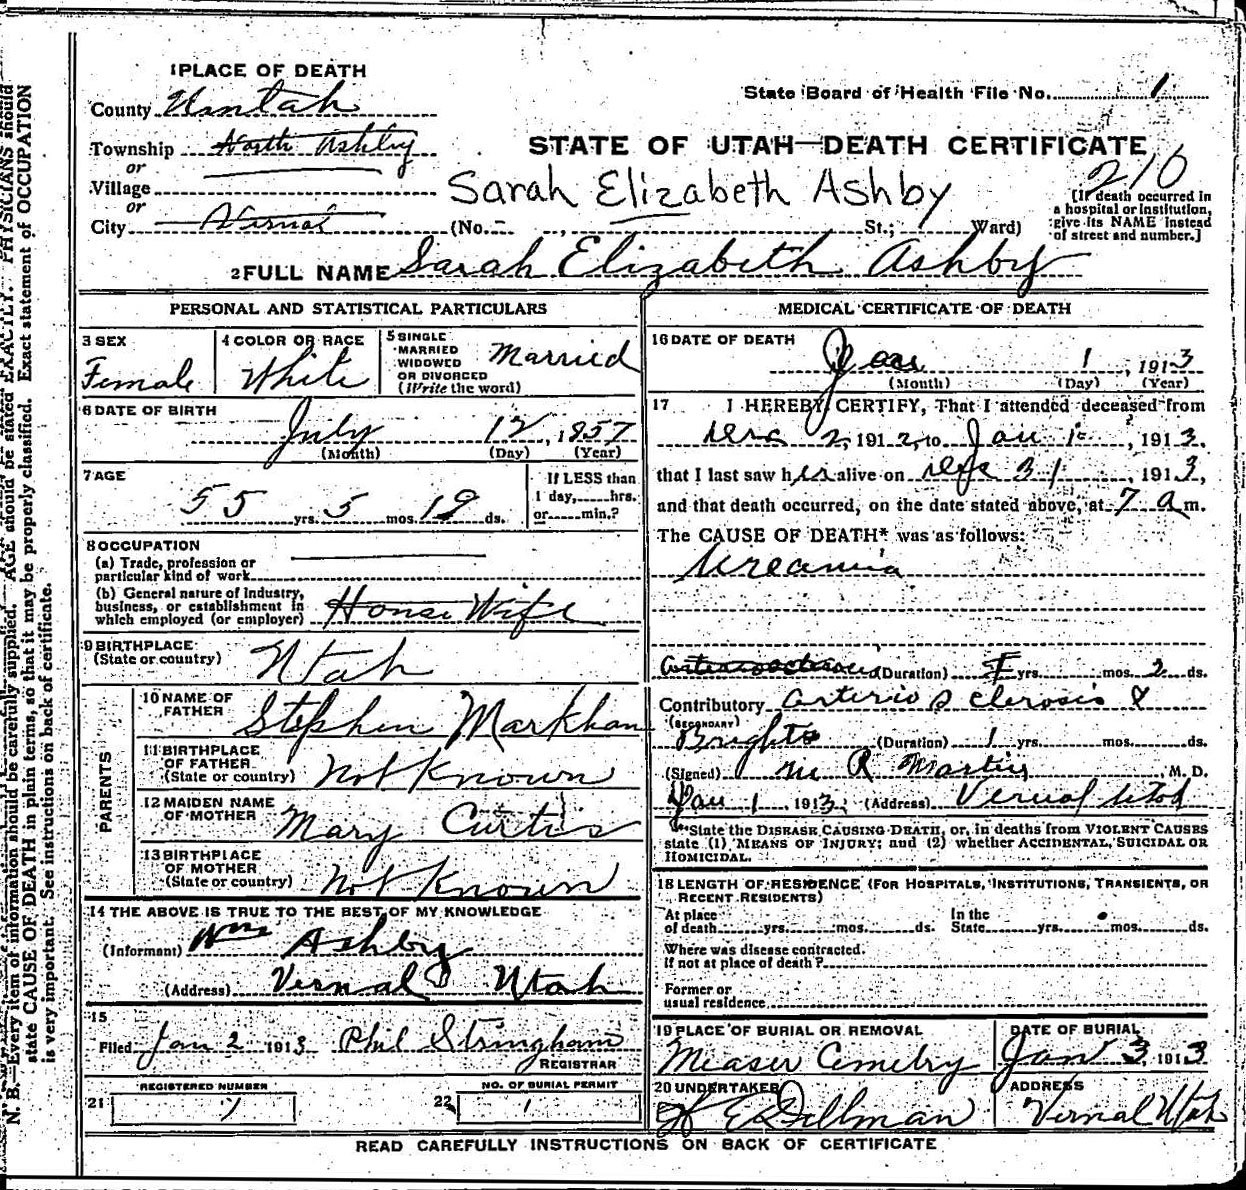 1 PLACE OF DEATH
County Uintah
State Board of Health File No. 1
Township North Ashley
or
Village
or
City Vernal
STATE OF UTAH—DEATH CERTIFICATE
210
Sarah Elizabeth Ashby
(No. St.; Ward)
[If death occurred in
a hospital or institution,
give its NAME instead
of street and number.]
2 FULL NAME Sarah Elizabeth Ashby
PERSONAL AND STATISTICAL PARTICULARS
3 SEX
Female
4 COLOR OR RACE
White
5 SINGLE
MARRIED
WIDOWED
OR DIVORCED
(Write the word)
Married
6 DATE OF BIRTH
July 12, 1857
(Month) (Day) (Year)
7 AGE
55 yrs. 5 mos. 19 ds.
If LESS than
1 day, hrs.
or min.?
8 OCCUPATION
(a) Trade, profession or
particular kind of work
(b) General nature of industry,
business, or establishment in
which employed (or employer) House Wife
9 BIRTHPLACE
(State or country) Utah
PARENTS
10 NAME OF
FATHER Stephen Markham
11 BIRTHPLACE
OF FATHER
(State or country) Not Known
12 MAIDEN NAME
OF MOTHER Mary Curtis
13 BIRTHPLACE
OF MOTHER
(State or country) Not Known
14 THE ABOVE IS TRUE TO THE BEST OF MY KNOWLEDGE
(Informant) Wm Ashby
(Address) Vernal Utah
15
Filed Jan 2 1913 Phil Stringham
REGISTRAR
REGISTERED NUMBER
21 1
NO. OF BURIAL PERMIT
22 1
MEDICAL CERTIFICATE OF DEATH
16 DATE OF DEATH
Jan 1, 1913
(Month) (Day) (Year)
17 I HEREBY CERTIFY, That I attended deceased from
Dec 2, 1912, to Jan 1, 1913,
that I last saw her alive on Dec 31, 1913,
and that death occurred, on the date stated above, at 7 a m.
The CAUSE OF DEATH* was as follows:
Ureamia
arteriosclerosis (Duration) yrs. mos. 2 ds.
Contributory arterio sclerosis &
(SECONDARY)
Brights (Duration) 1 yrs. mos. ds.
(Signed) M R Martin M. D.
Jan 1, 1913 (Address) Vernal Utah
*State the DISEASE CAUSING DEATH, or, in deaths from VIOLENT CAUSES
state (1) MEANS OF INJURY; and (2) whether ACCIDENTAL, SUICIDAL OR
HOMICIDAL.
18 LENGTH OF RESIDENCE (FOR HOSPITALS, INSTITUTIONS, TRANSIENTS, OR
RECENT RESIDENTS)
At place
of death yrs. mos. ds.
In the
State yrs. mos. ds.
Where was disease contracted.
If not at place of death?
Former or
usual residence
19 PLACE OF BURIAL OR REMOVAL
Measer Cemetry
DATE OF BURIAL
Jan 3 1913
20 UNDERTAKER
Dillman
ADDRESS
Vernal Utah
READ CAREFULLY INSTRUCTIONS ON BACK OF CERTIFICATE
N. B.—Every item of information should be carefully supplied. AGE should be stated EXACTLY. PHYSICIANS should
state CAUSE OF DEATH in plain terms, so that it may be properly classified. Exact statement of OCCUPATION
is very important. See instructions on back of certificate.